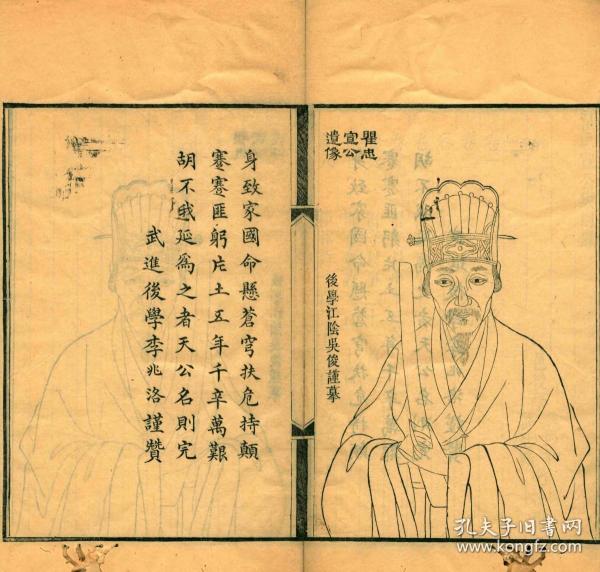 瞿忠
宣公
遺像
後學江陰吳俊謹摹
身致家國命懸蒼穹扶危持顛
蹇蹇匪躬片土五年千辛萬艱
胡不我延為之者天公名則完
武進後學李兆洛謹贊
孔夫子旧书网
www.kongfz.com